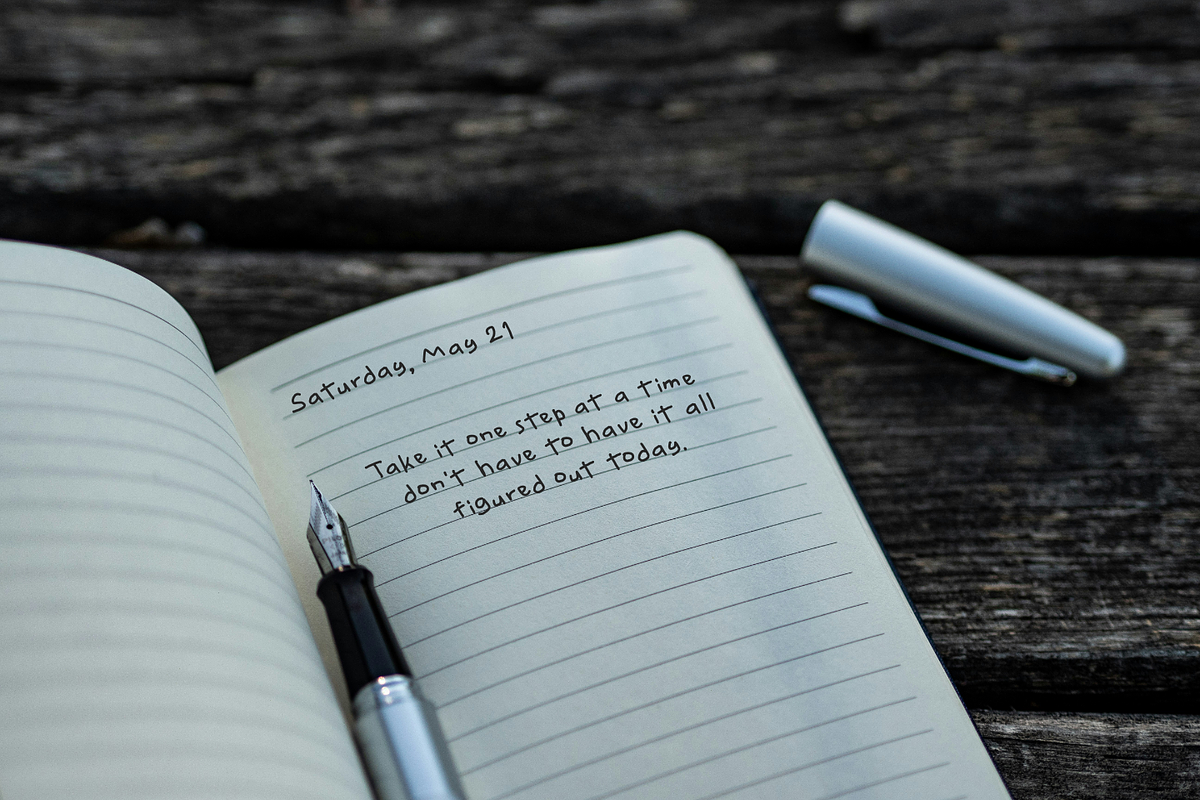 Saturday, May 21
Take it one step at a time
don't have to have it all
figured out today.